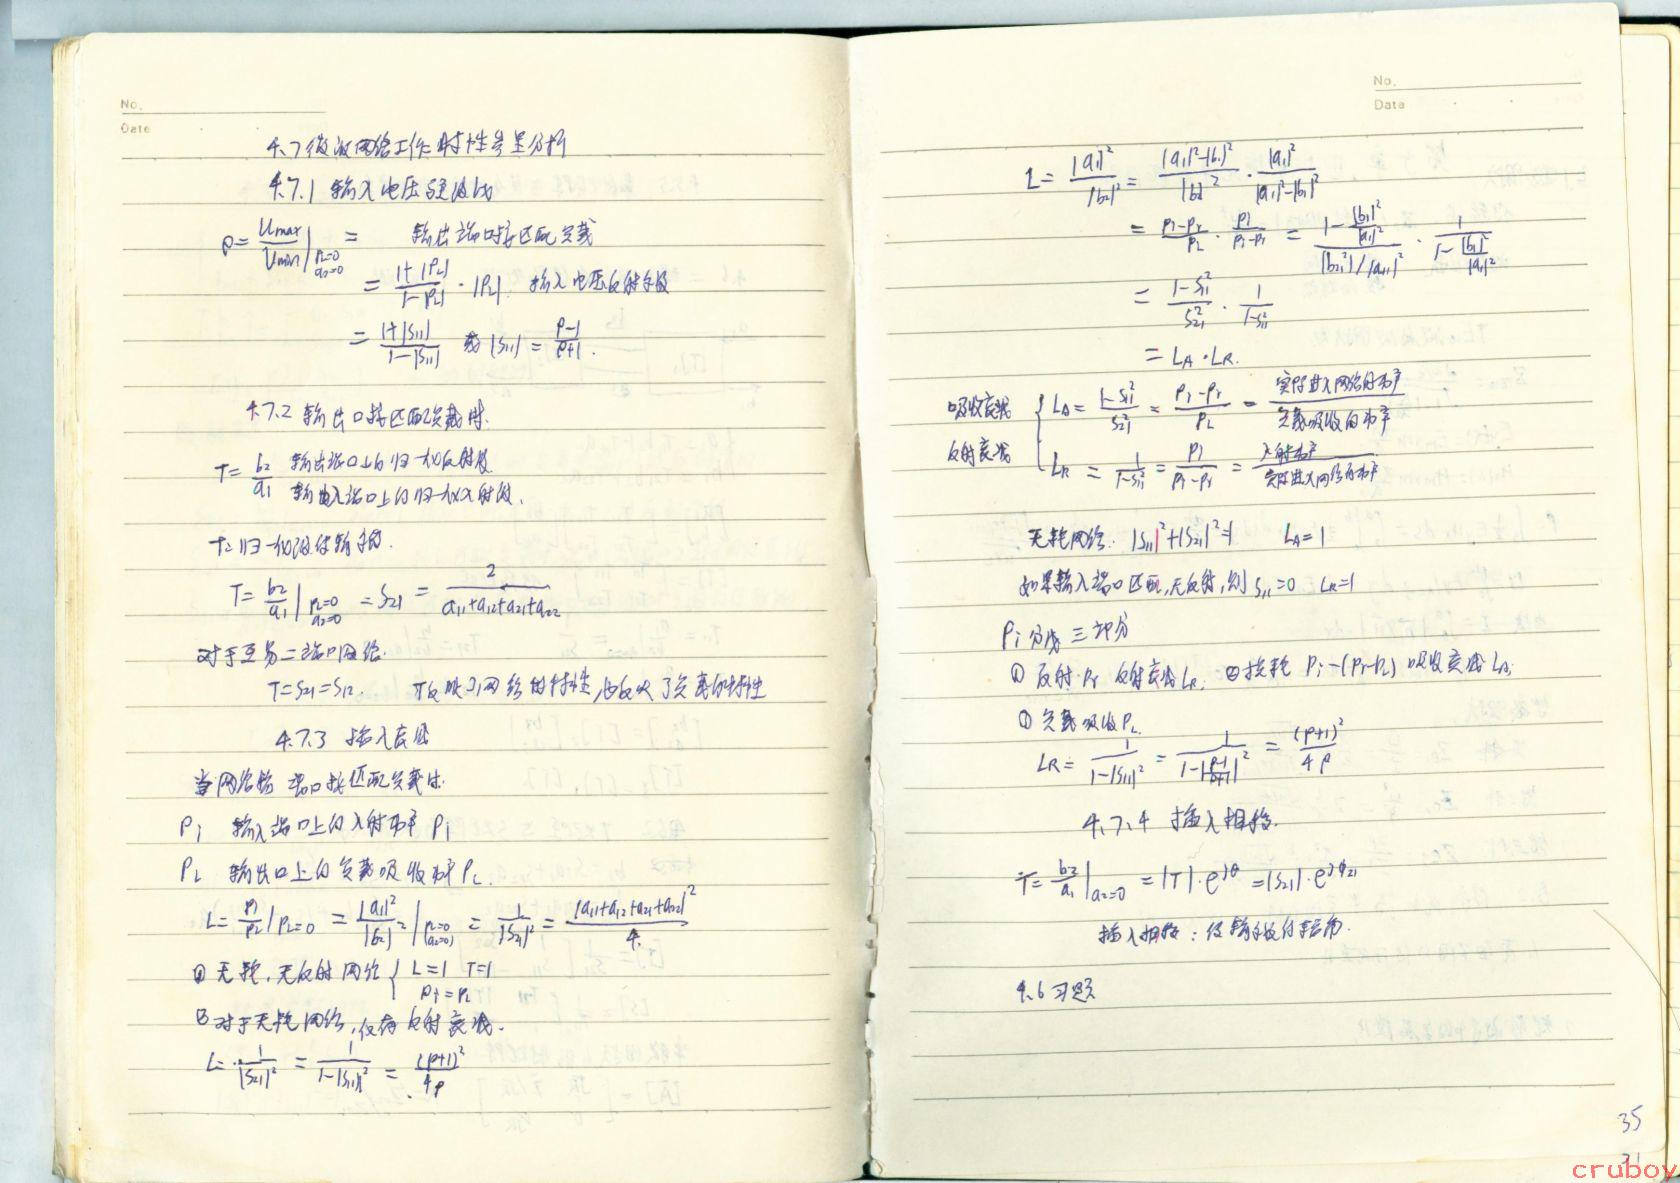 No.
Date
4.7 微波网络工作特性参量分析
4.7.1 输入电压驻波比
ρ = Umax/Umin |ΓL=0 a2=0 = 输出端口接匹配负载
= (1+|ΓL|)/(1-|ΓL|) · |ΓL| 输入电压反射系数
= (1+|S11|)/(1-|S11|) 或 |S11| = (ρ-1)/(ρ+1).
4.7.2 输出口接匹配负载时.
T = b2/a1 输出端口上的归一化反射波
输入端口上的归一化入射波.
T = 归一化波传输系数.
T = b2/a1 |ΓL=0 a2=0 = S21 = 2/(a11+a12+a21+a22)
对于互易二端口网络.
T=S21=S12. 不仅反映了网络的特性,也反映了负载的特性
4.7.3 插入衰减
当网络输出端口接匹配负载时.
Pi 输入端口上的入射功率 Pi
PL 输出口上的负载吸收功率 PL.
L = Pi/PL |ΓL=0 = |a1|²/|b2|² |ΓL=0 (a2=0) = 1/|S21|² = |a11+a12+a21+a22|²/4.
① 无耗,无反射网络 { L=1 T=1
Pi=PL
② 对于无耗网络,仅有反射衰减.
L = 1/|S21|² = 1/(1-|S11|²) = (ρ+1)²/4ρ
No.
Date
L = |a1|²/|b2|² = (|a1|²-|b1|²)/|b2|² · |a1|²/(|a1|²-|b1|²)
= (Pi-Pr)/PL · Pi/(Pi-Pr) = (1-|b1|²/|a1|²)/(|b2|²/|a1|²) · 1/(1-|b1|²/|a1|²)
= (1-S11²)/S21² · 1/(1-S11²)
= LA · LR.
吸收衰减 { LA = (1-S11²)/S21² = (Pi-Pr)/PL = 实际进入网络的功率/负载吸收的功率
反射衰减 LR = 1/(1-S11²) = Pi/(Pi-Pr) = 入射功率/实际进入网络的功率
无耗网络: |S11|²+|S21|²=1 LA=1
如果输入端口匹配,无反射,则 S11=0 LR=1
Pi 分成三部分
① 反射 Pr 反射衰减 LR. ② 损耗 Pi-(Pr-PL) 吸收衰减 LA.
③ 负载吸收 PL.
LR = 1/(1-|S11|²) = 1/(1-|(ρ-1)/(ρ+1)|²) = (ρ+1)²/4ρ
4.7.4 插入相移.
T = b2/a1 |a2=0 = |T|·e^jθ = |S21|·e^jφ21
插入相移: 传输系数的辐角.
4.6 习题
35
31
cruboy